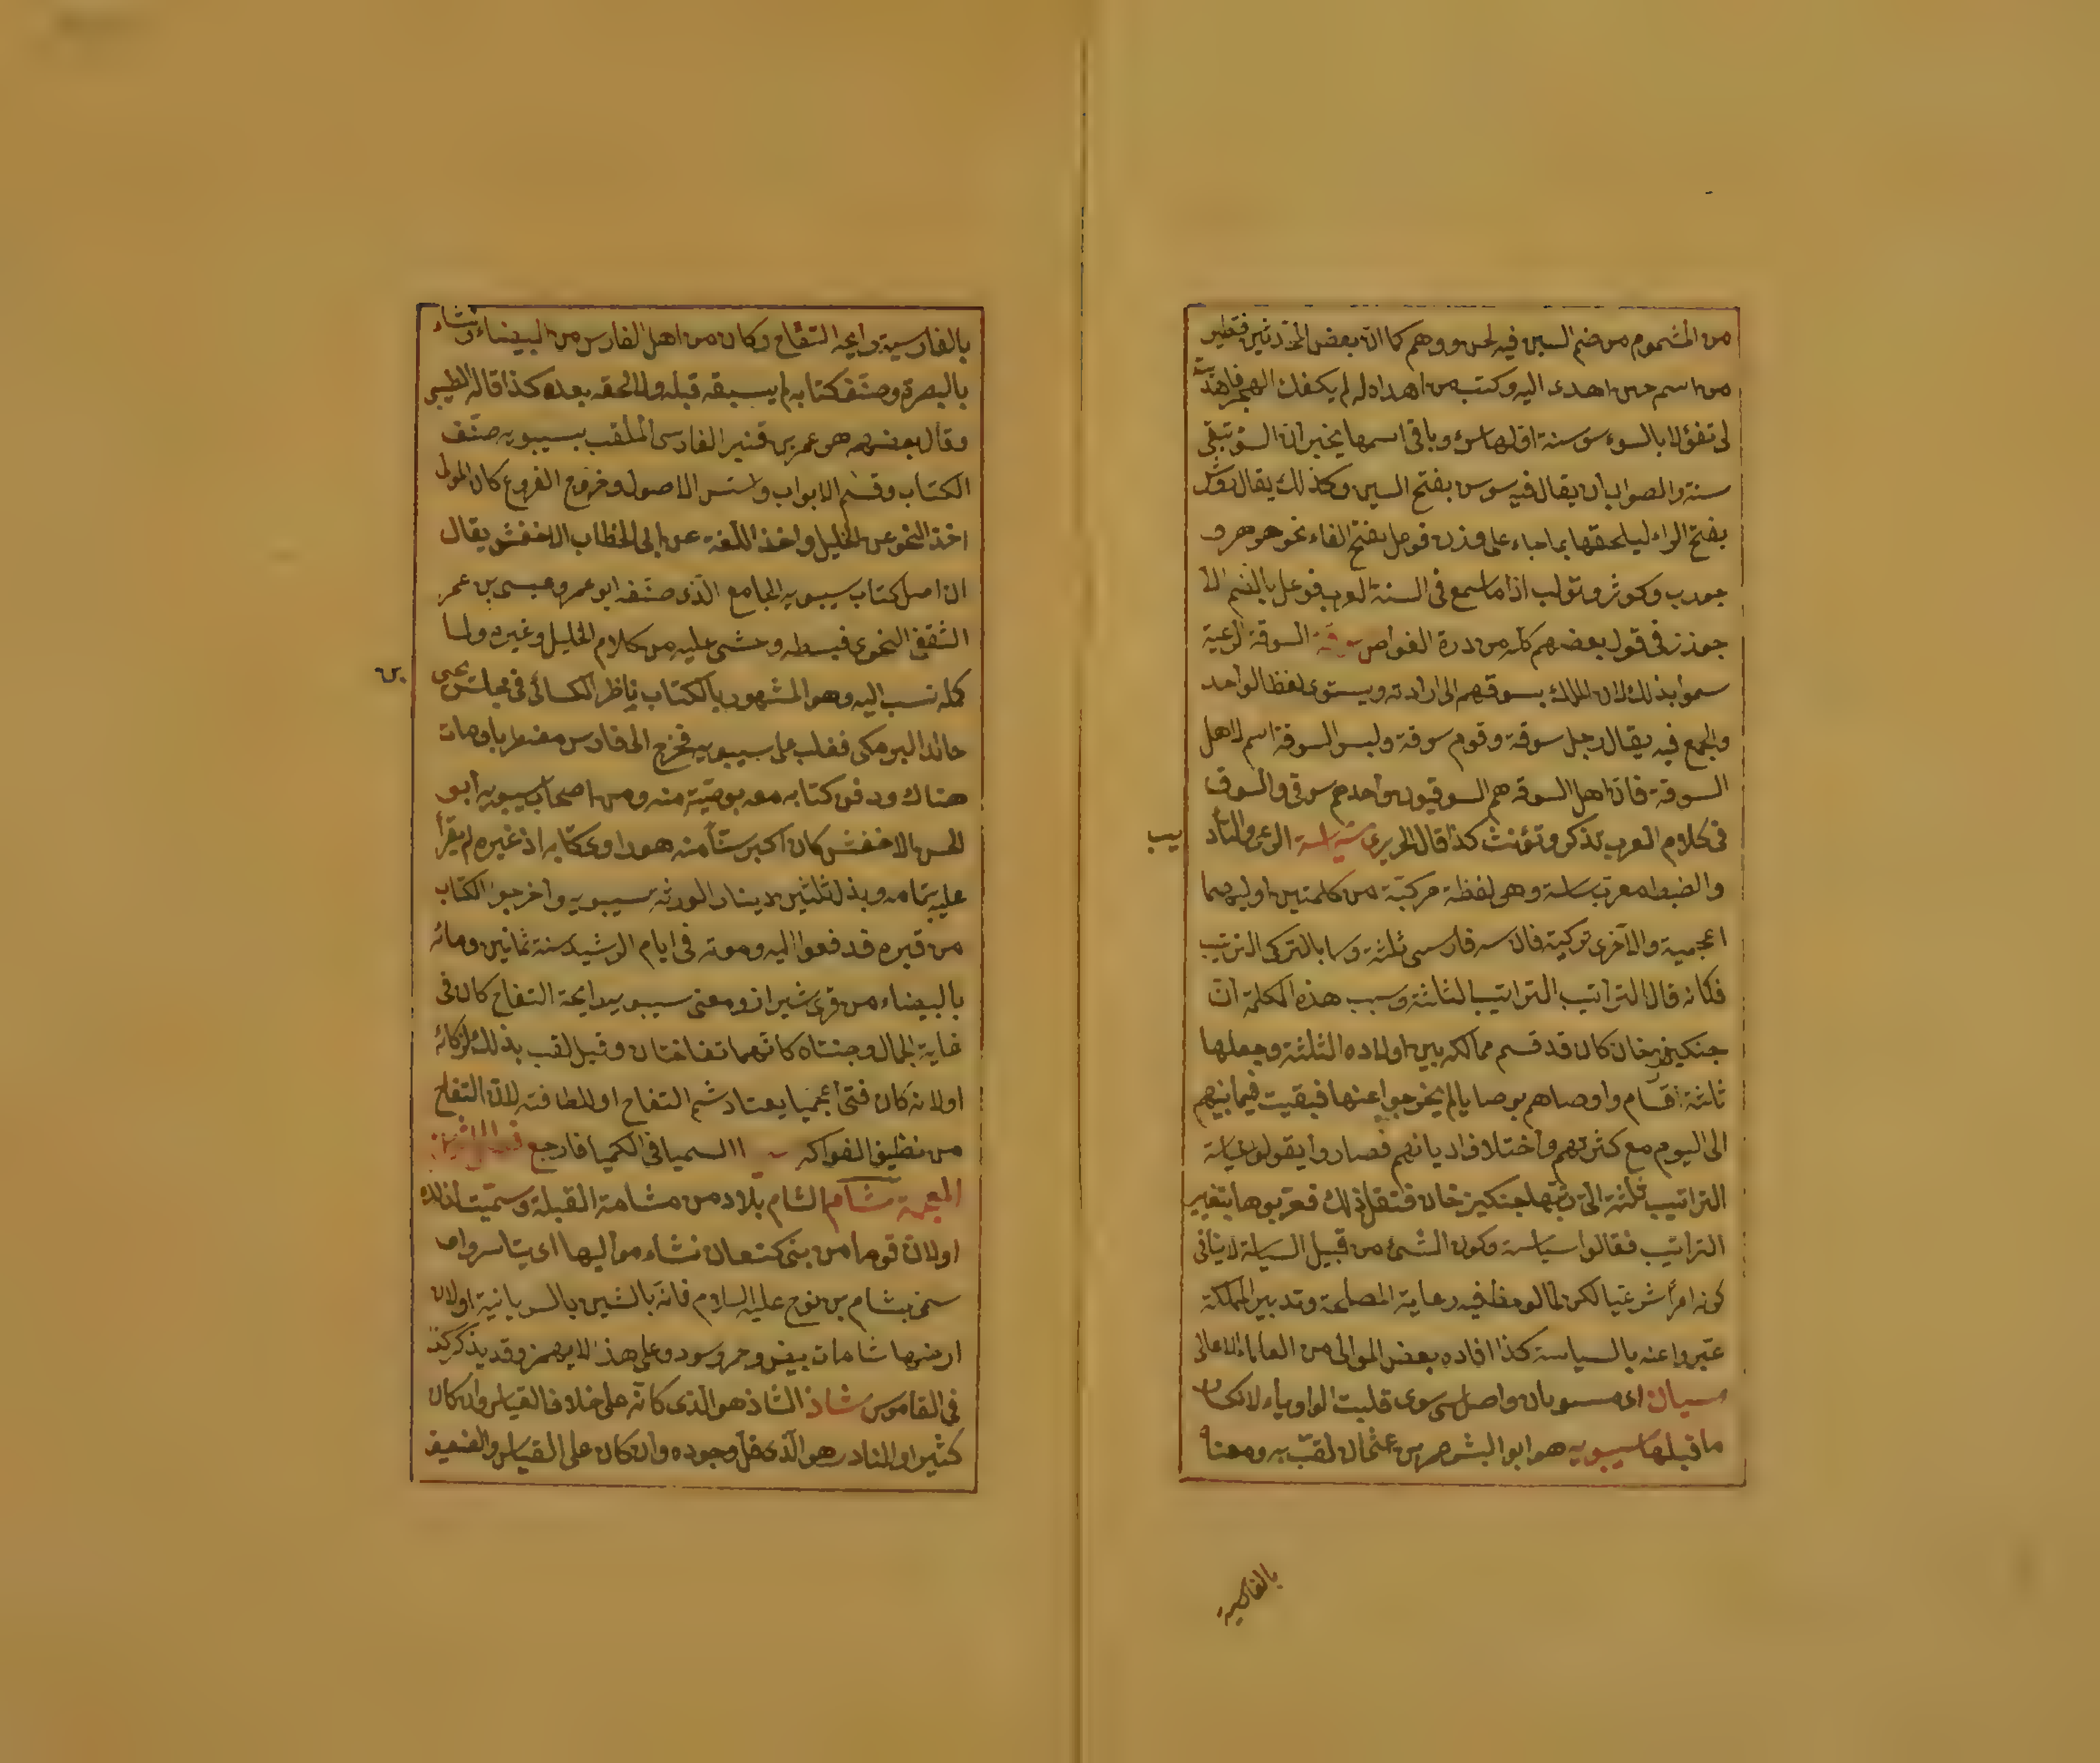 من المشموم من ضم السين فيه لحن ووهم كما ان بعض المحدثين فتطير
من اسم حين اهدى اليه وكتب من اهداه له لم يكفك الهجر فاهديت
لى تفؤلا بالسوء سوسنة اولها سوء وباقى اسمها يخبر ان السوء تبقى
سنة والصواب ان يقال فيه سوس بفتح السين وكذلك يقال روشن
بفتح الراء ليلحقها بما جاء على وزن فوعل بفتح الفاء نحو جوهر و
جورب وكوثر وتولب اذ ما سمع فى السنة العرب فوعل بالضم الا
جوذر فى قول بعضهم كله من درة الغواص سوقة السوقة الرعية
سموا بذلك لان الملك يسوقهم الى ارادته ويستوى لفظ الواحد
والجمع فيه يقال رجل سوقة وقوم سوقة وليس السوقة اسم لاهل
السوقة فان اهل السوقة هم السوقيون واحدهم سوقى والسوق
فى كلام العرب تذكر وتؤنث كذا قال الحريرى سياسة الرعى والتأد
يب
والضبط معرب سياسة وهى لفظة مركبة من كلمتين اوليهما
اعجمية والاخرى تركية فان سه فارسى ثلثة وسا بالتركى الترتيب
فكانه قال التراتيب التراتيب الثلثة وسبب هذه الكلمة ان
جنكيز خان كان قد قسم ممالكه بين اولاده الثلثة وجعلها
ثلثة اقسام واوصاهم بوصايا لم يخرجوا عنها فبقيت فيما بينهم
الى اليوم مع كثرتهم واختلاف اديانهم فصاروا يقولون سياسة
التراتيب ثلثة التى رتبها جنكيز خان فثقل ذلك فعربوها بتغيير
التراتيب فقالوا سياسة وكون الشئ من قبيل السياسة لا ينافى
كونه امرا شرعيا لكن لما لوحظ فيه رعاية المصلحة وتدبير المملكة
عبروا عنه بالسياسة كذا افاده بعض الموالى من العلماء الاعالى
سيان اى مسويان واصل سى سوى قلبت الواو ياء لانكسار
ما قبلها سيبويه هو ابو البشر عمر بن عثمان لقب به ومعناه
بالفارسية
بالفارسية رايحة التفاح وكان من اهل الفارس من البيضاء ونشاء
بالبصرة وصنف كتابه لم يسبقه قبله ولا لحقه بعده كذا قاله الطيبى
وقال بعضهم هو عمر بن قنبر الفارسى الملقب بسيبويه صنف
الكتاب وقسم الابواب واسس الاصول وفرع الفروع كان المولى
اخذ النحو عن الخليل واخذ اللغة عن ابى الخطاب الاخفش يقال
ان اصل كتاب سيبويه الجامع الذى صنفه ابو عمرو عيسى بن عمر
الثقفى النحوى فبسطه وحشى عليه من كلام الخليل وغيره ولما
كمله نسب اليه وهو المشهور بالكتاب ناظر الكسائى فى مجلس يحيى
بن
خالد البرمكى فغلب على سيبويه فخرج الى فارس مغتما وبها مات
هناك ودفن كتابه معه بوصية منه ومن اصحاب سيبويه ابو
الحسن الاخفش كان اكبر سنا منه هو راوى كتابه اذ غيره لم يقرأ
عليه تمامه وبذل ثلثين دينار الورثة سيبويه واخرجوا الكتاب
من قبره فدفعوا اليه وموته فى ايام الرشيد سنة ثمانين ومائه
بالبيضاء من قرى شيراز ومعنى سيبويه رايحة التفاح كان فى
غاية الجمال وجنتاه كانهما تفاختان وقيل لقب بذلك لزكائه
اولانه كان فتى اعجميا يعتاد شم التفاح او للطافته لان التفاح
من نظيف الفواكه السميا فى الكميا فارجع
المعجمة شام الشام بلاد من مشامة القبلة وسميت لذلك
اولان قوما من بنى كنعان تشاءموا اليها اى يتاسروا او
سمى بشام بن نوح عليه السلام فانه بالشين بالسريانية اولان
ارضها شامات بيض وحمر وسود وعلى هذا لا يهمز وقد يذكر كذا
فى القاموس شاذ الشاذ هو الذى كانه على خلاف القياس وان كان
كثيرا والنادر هو الذى قل وجوده وان كان على القياس والضعيف